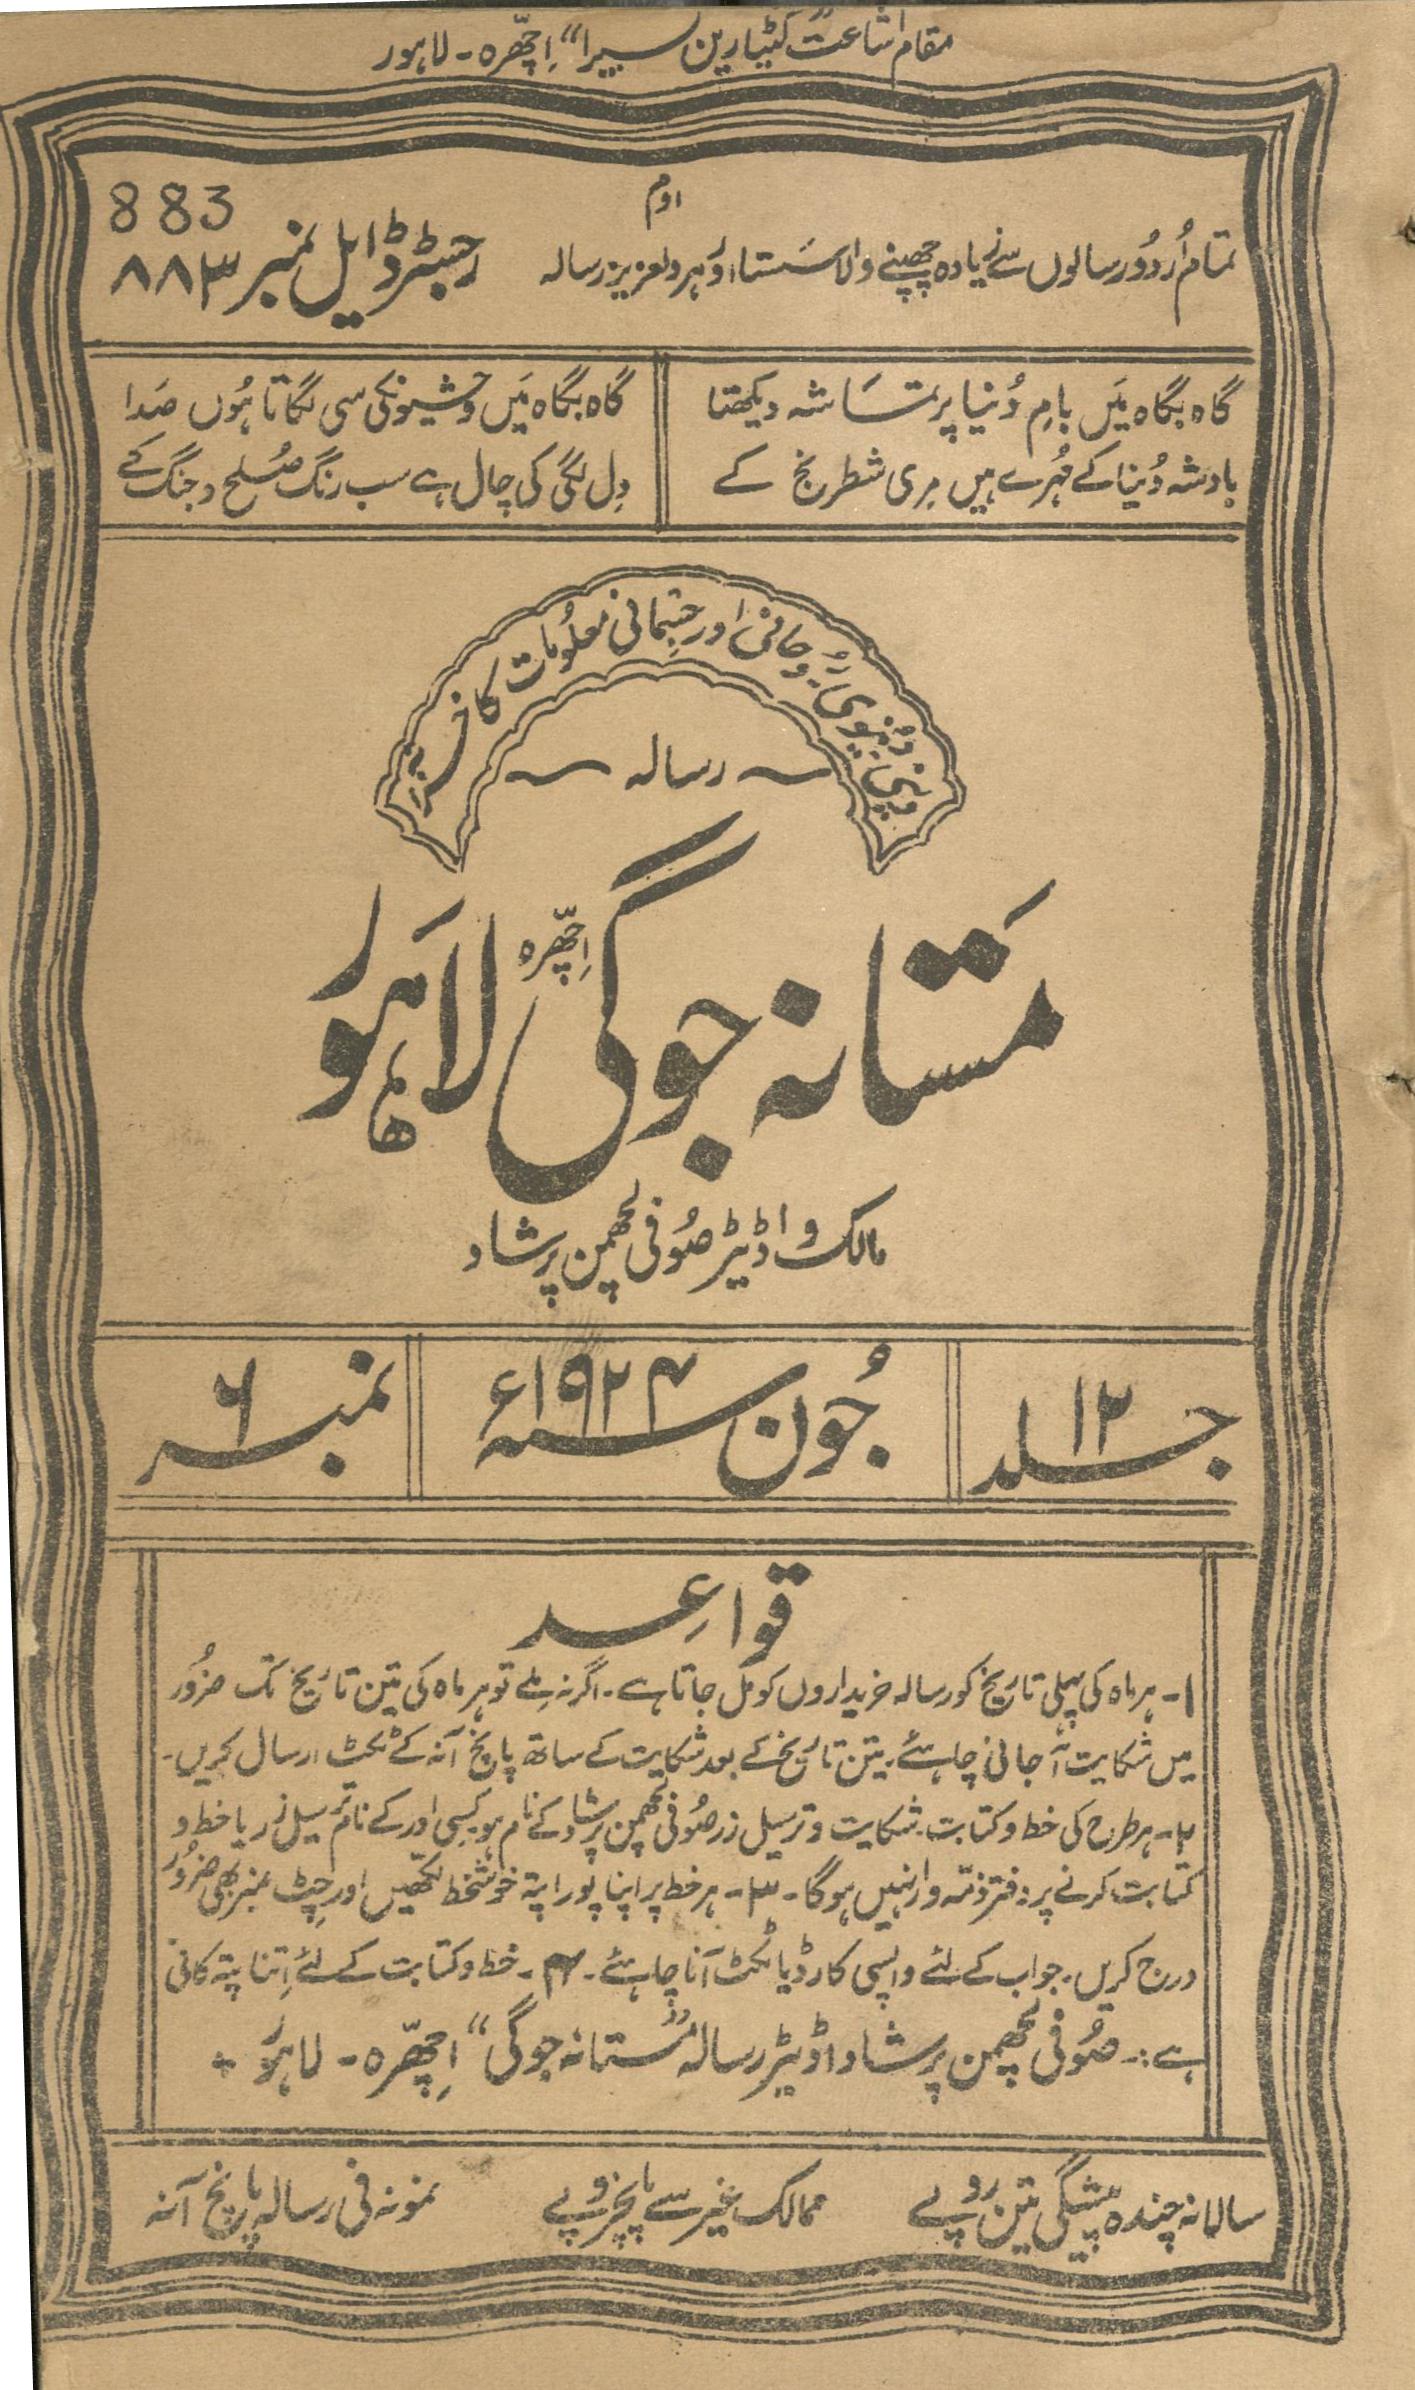 مقام اشاعت "کٹیا رین بسیرا" اِچھّرہ - لاہور
اوم
883
تمام اُردُو رسالوں سے زیادہ چھپنے والا سَستا اوُر ہر دلعزیز رسالہ
رجسٹرڈ ایل نمبر ۸۸۳
گاہ بگاہ مَیں بامِ دُنیا پر تمَاشہ دیکھتا
گاہ بگاہ مَیں وحشیونکی سی لگاتا ہُوں صَدا
بادشہ دُنیا کے مُہرے ہیں مِری شطرنج کے
دِل لگی کی چال ہے سب رنگ صُلح و جنگ کے
دینی دُنیوی رُوحانی اور جسمانی معلُومات کا خزینہ
رسالہ
مَستانہ جوگی لاہور
اِچھّرہ
مالک و اڈیٹر صُوفی لچھمن پرشاد
جلد ۱۲
جُون سنہ ۱۹۲۴ء
نمبر ۶
قواعِد
۱- ہر ماہ کی پہلی تاریخ کو رسالہ خریداروں کو مل جاتا ہے - اگر نہ مِلے تو ہر ماہ کی تین تاریخ تک ضرُور
میں شکایت آ جانی چاہئے - تین تاریخ کے بعد شکایت کے ساتھ پانچ آنہ کے ٹکٹ ارسال کریں -
۲- ہر طرح کی خط و کتابت شکایت و ترسیل زر صُوفی لچھمن پرشاد کے نام ہو کسِی اور کے نام ترسیل زر یا خط و
کتابت کرنے پر دفتر ذمّہ وار نہیں ہوگا - ۳- ہر خط پر اپنا پورا پتہ خوشخط لکھّیں اور چِٹ نمبر بھی ضرُور
درج کریں - جواب کے لئے واپسی کارڈ یا ٹکٹ آنا چاہئے - ۴ - خط و کتابت کے لئے اِتنا پتہ کافی
ہے :- صُوفی لچھمن پرشاد اڈیٹر رسالہ "مَستانہ جوگی" اِچھّرہ - لاہور +
سالانہ چندہ پیشگی تین روپے
ممالک غیر سے پانچ روپے
نمونہ فی رسالہ پانچ آنہ